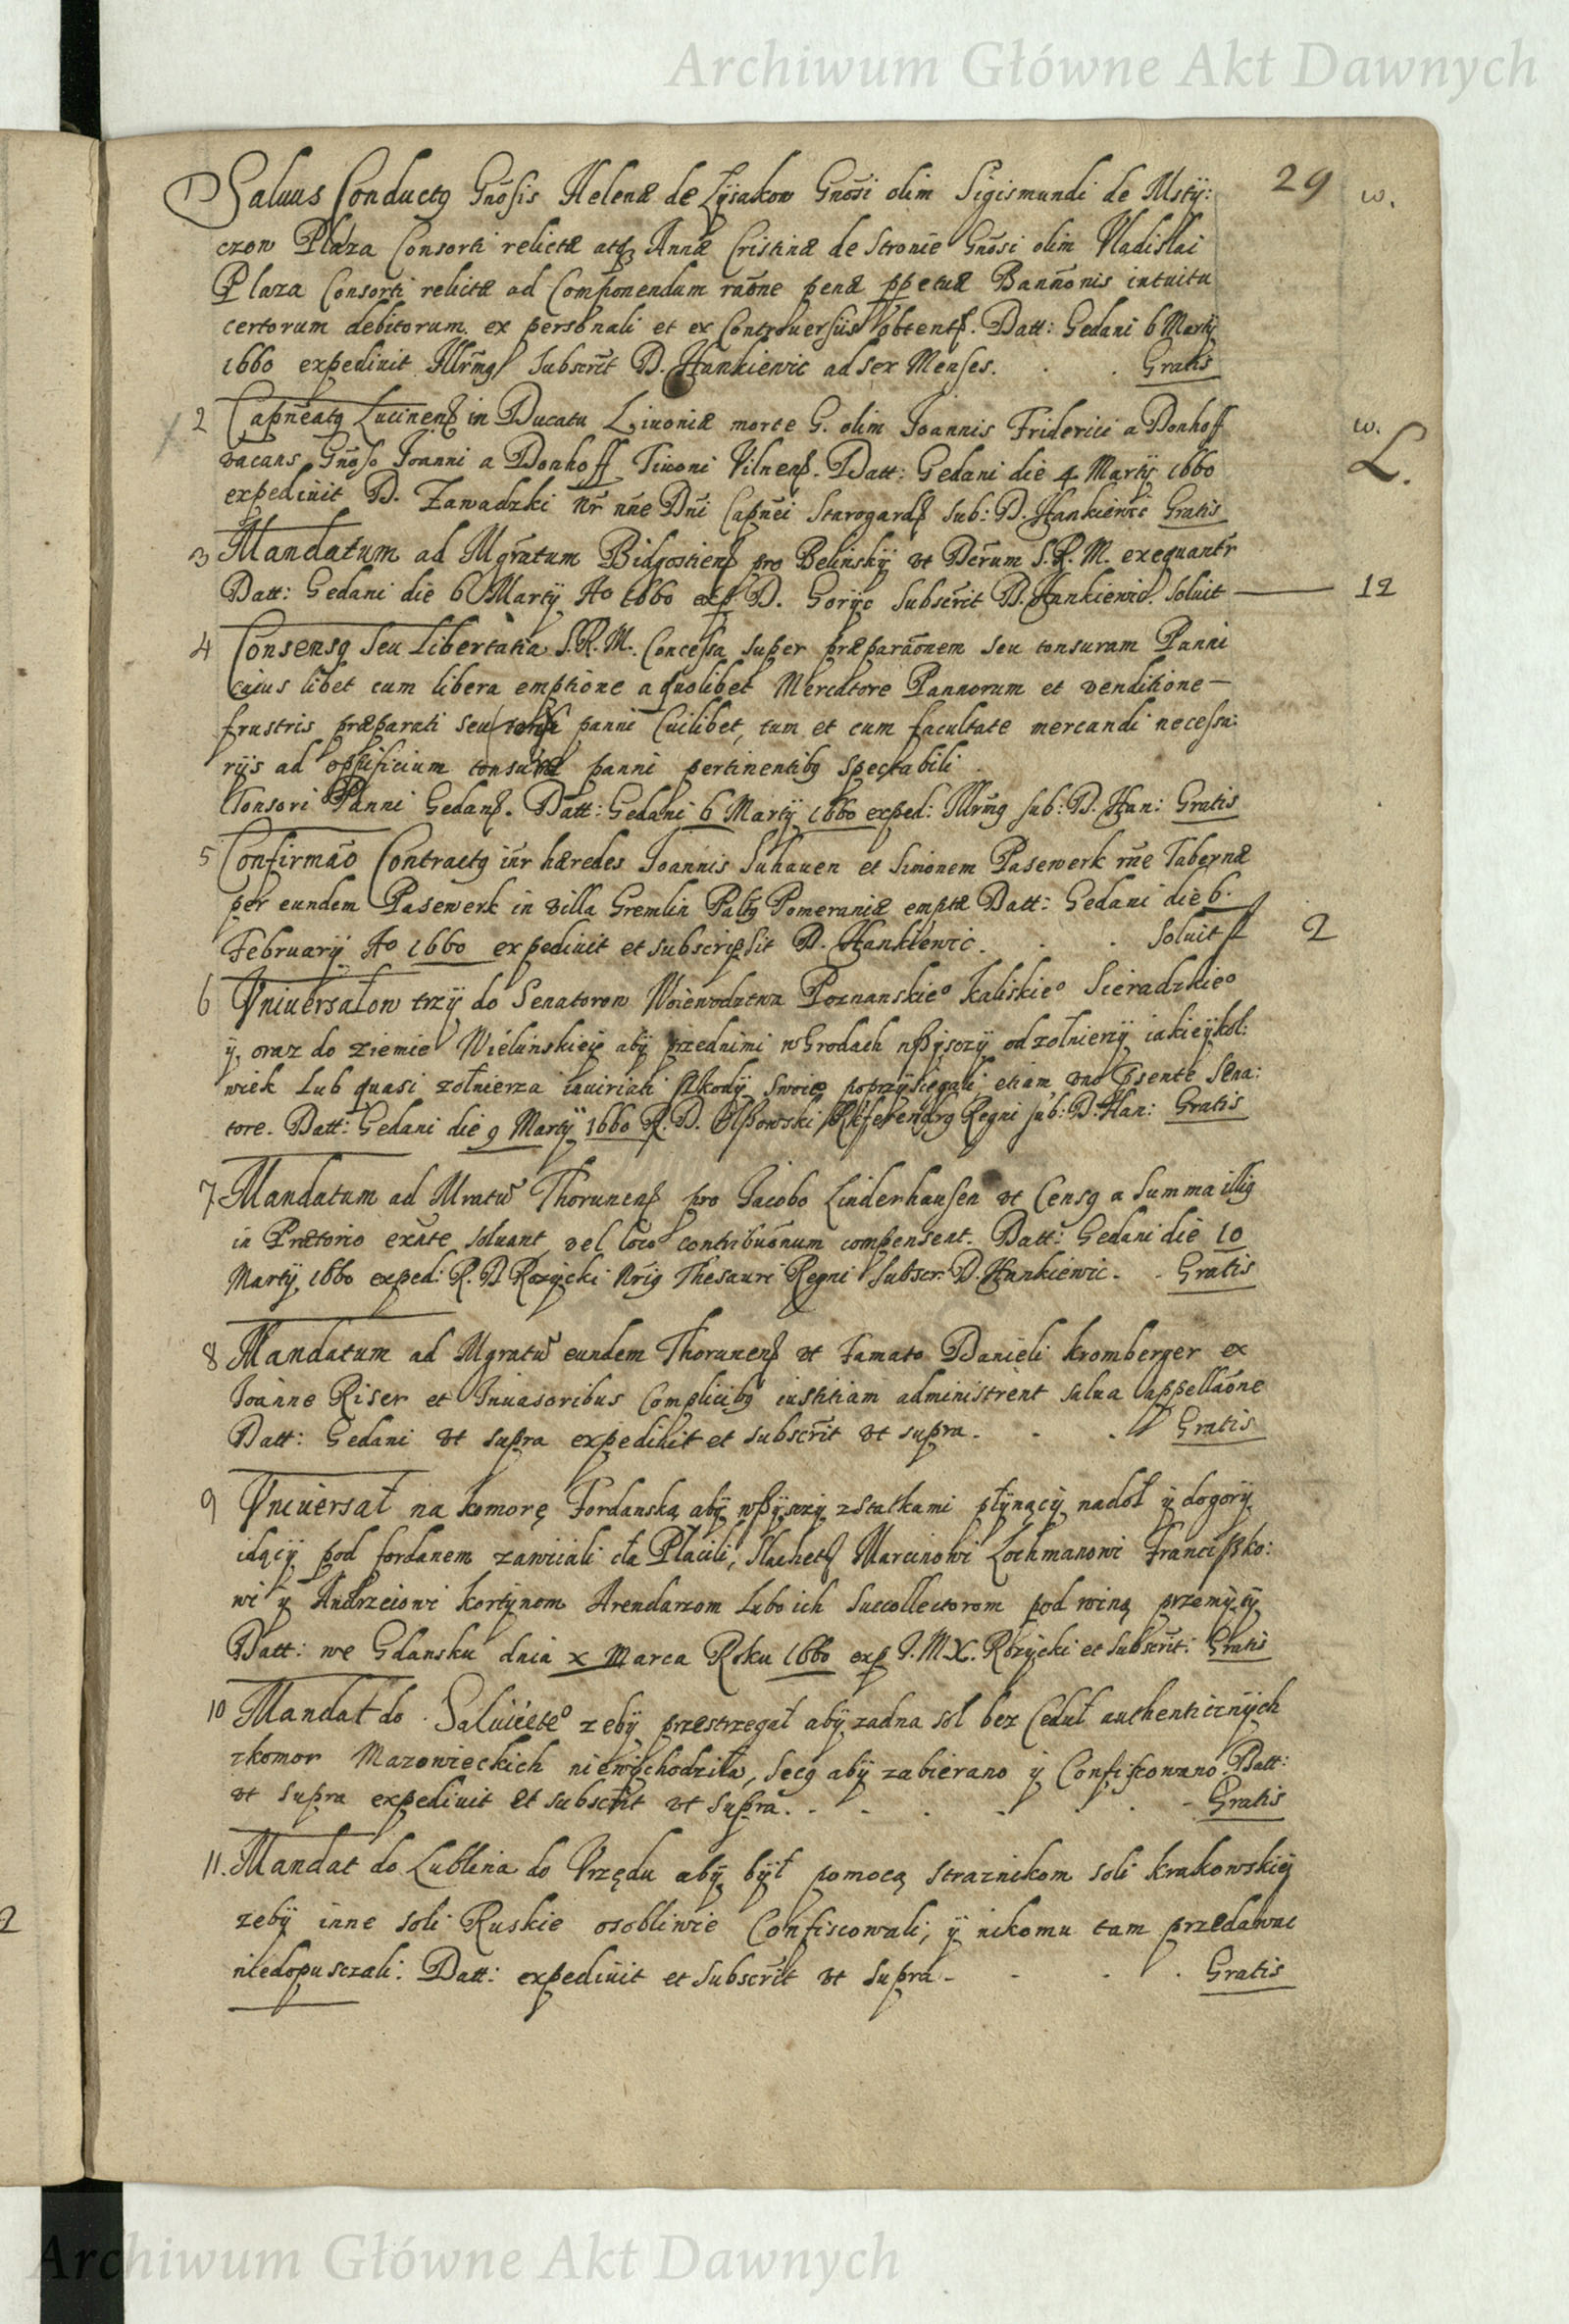 Archiwum Główne Akt Dawnych
29
Saluus Conductq Gnosis Helenæ de Lysakow Gnosi olim Sigismundi de Msty:
w.
czow Plaza Consorti relictæ atq Annæ Cristinæ de Stronie Gnosi olim Vladislai
Plaza Consorti relictæ ad Componendum raōne penæ ppetuæ Bannōnis intuitu
certorum debitorum ex personali et ex Controuersiis obtent. Datt: Gedani 6 Martÿ
1660 expediuit Illrmq Subscrit D. Hankiewic ad sex Menses. Gratis
2 Capneatq Lucinens in Ducatu Liuoniæ morte G. olim Joannis Friderici a Donhoff
w.
L.
vacans Gnoso Joanni a Donhoff Tiuoni Vilnens. Datt: Gedani die 4 Martÿ 1660
expediuit D. Zawadzki Nr nne Dni Capnei Starogards sub: D. Hankiewic Gratis
3 Mandatum ad Mgratum Bidgostiens pro Belinskÿ vt Derum S.R.M. exequantr
Datt: Gedani die 6 Martÿ Ao 1660 exp D. Goryc Subscrit D. Hankiewic. Soluit — 12
4 Consensq seu Libertatia S.R.M. Concessa super præparaōnem seu tonsuram Panni
cuius libet cum libera emptione a quolibet Mercatore Pannorum et venditione —
frustris præparati seu panni Cuilibet, tum et cum facultate mercandi necessa:
rÿs ad opificium tonsuræ panni pertinentibq spectabili
Tonsori Panni Gedans. Datt: Gedani 6 Martÿ 1660 exped: Illrmq sub: D. Han: Gratis
5 Confirmāo Contractq intr hæredes Joannis Suhauen et Simonem Pasewerk rne Tabernæ
per eundem Pasewerk in villa Gremlin Paltq Pomeraniæ emptæ Datt: Gedani die 6.
Februarÿ Ao 1660 expediuit et subscripsit D. Hankiewic. Soluit 2
6 Vniuersałow trzÿ do Senatorow Woiewodztwa Poznanskieo Kaliskieo Sieradzkieo
ÿ oraz do ziemie Wieluńskieÿ abÿ przednimi w Grodach wßÿsczÿ od zołnierzÿ iakieÿkol:
wiek Lub quasi zołnierza iniuriati szkodÿ swoie poprzÿsięgali etiam vno psente Sena:
tore. Datt: Gedani die 9 Martÿ 1660 R. D. Olßowski Referendrq Regni sub: D. Han: Gratis
7 Mandatum ad Mratu Thorunens pro Jacobo Linderhausen vt Censq a Summa illiq
in Prætorio exnte soluant vel loco contribuōnum compensent. Datt: Gedani die 10
Martÿ 1660 exped: R. D Rozycki Nriq Thesauri Regni Subscr: D. Hankiewic. Gratis
8 Mandatum ad Mgratu eundem Thorunens vt Famato Danieli Kromberger ex
Joanne Riser et Inuasoribus Complicibq iustitiam administrent salua appellaōne
Datt: Gedani vt supra expediuit et subscrit vt supra. Gratis
9 Vniuersał na komorę Fordanską abÿ wßÿsczÿ zstatkami płÿnącÿ nadoł ÿ dogorÿ
idącÿ pod fordanem zawiiali cła Płacili, Slachets Marcinowi Lochmanowi Francißko:
wi ÿ Andrzeiowi Kortynom Arendarzom Lubo ich Succollectorom pod winą przemÿtÿ
Datt: we Gdansku dnia x Marca Roku 1660 exp J.M.X. Rozycki et Subscrit: Gratis
10 Mandat do Saluiceteo zebÿ przestrzegał abÿ zadna sol bez Ceduł authenticznÿch
zkomor Mazowieckich niewÿchodziła, secq abÿ zabierano ÿ Confiscowano. Datt:
vt supra expediuit et subscrit vt supra. Gratis
11. Mandat do Lublina do Vrzędu abÿ bÿł pomocą straznikom soli krakowskiÿ
zebÿ inne soli Ruskie osobliwie Confiscowali, ÿ nikomu tam przedawac
niedopusczali. Datt: expediuit et subscrit vt supra. Gratis
2
Archiwum Główne Akt Dawnych